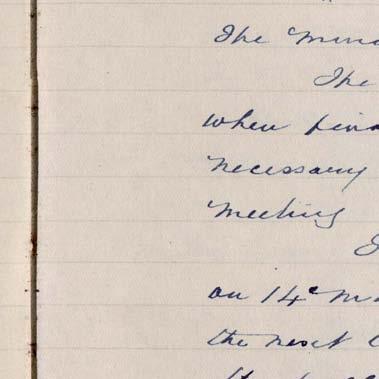 The Minu
The
when fina
necessary
Meeting
on 14th Ma
the next